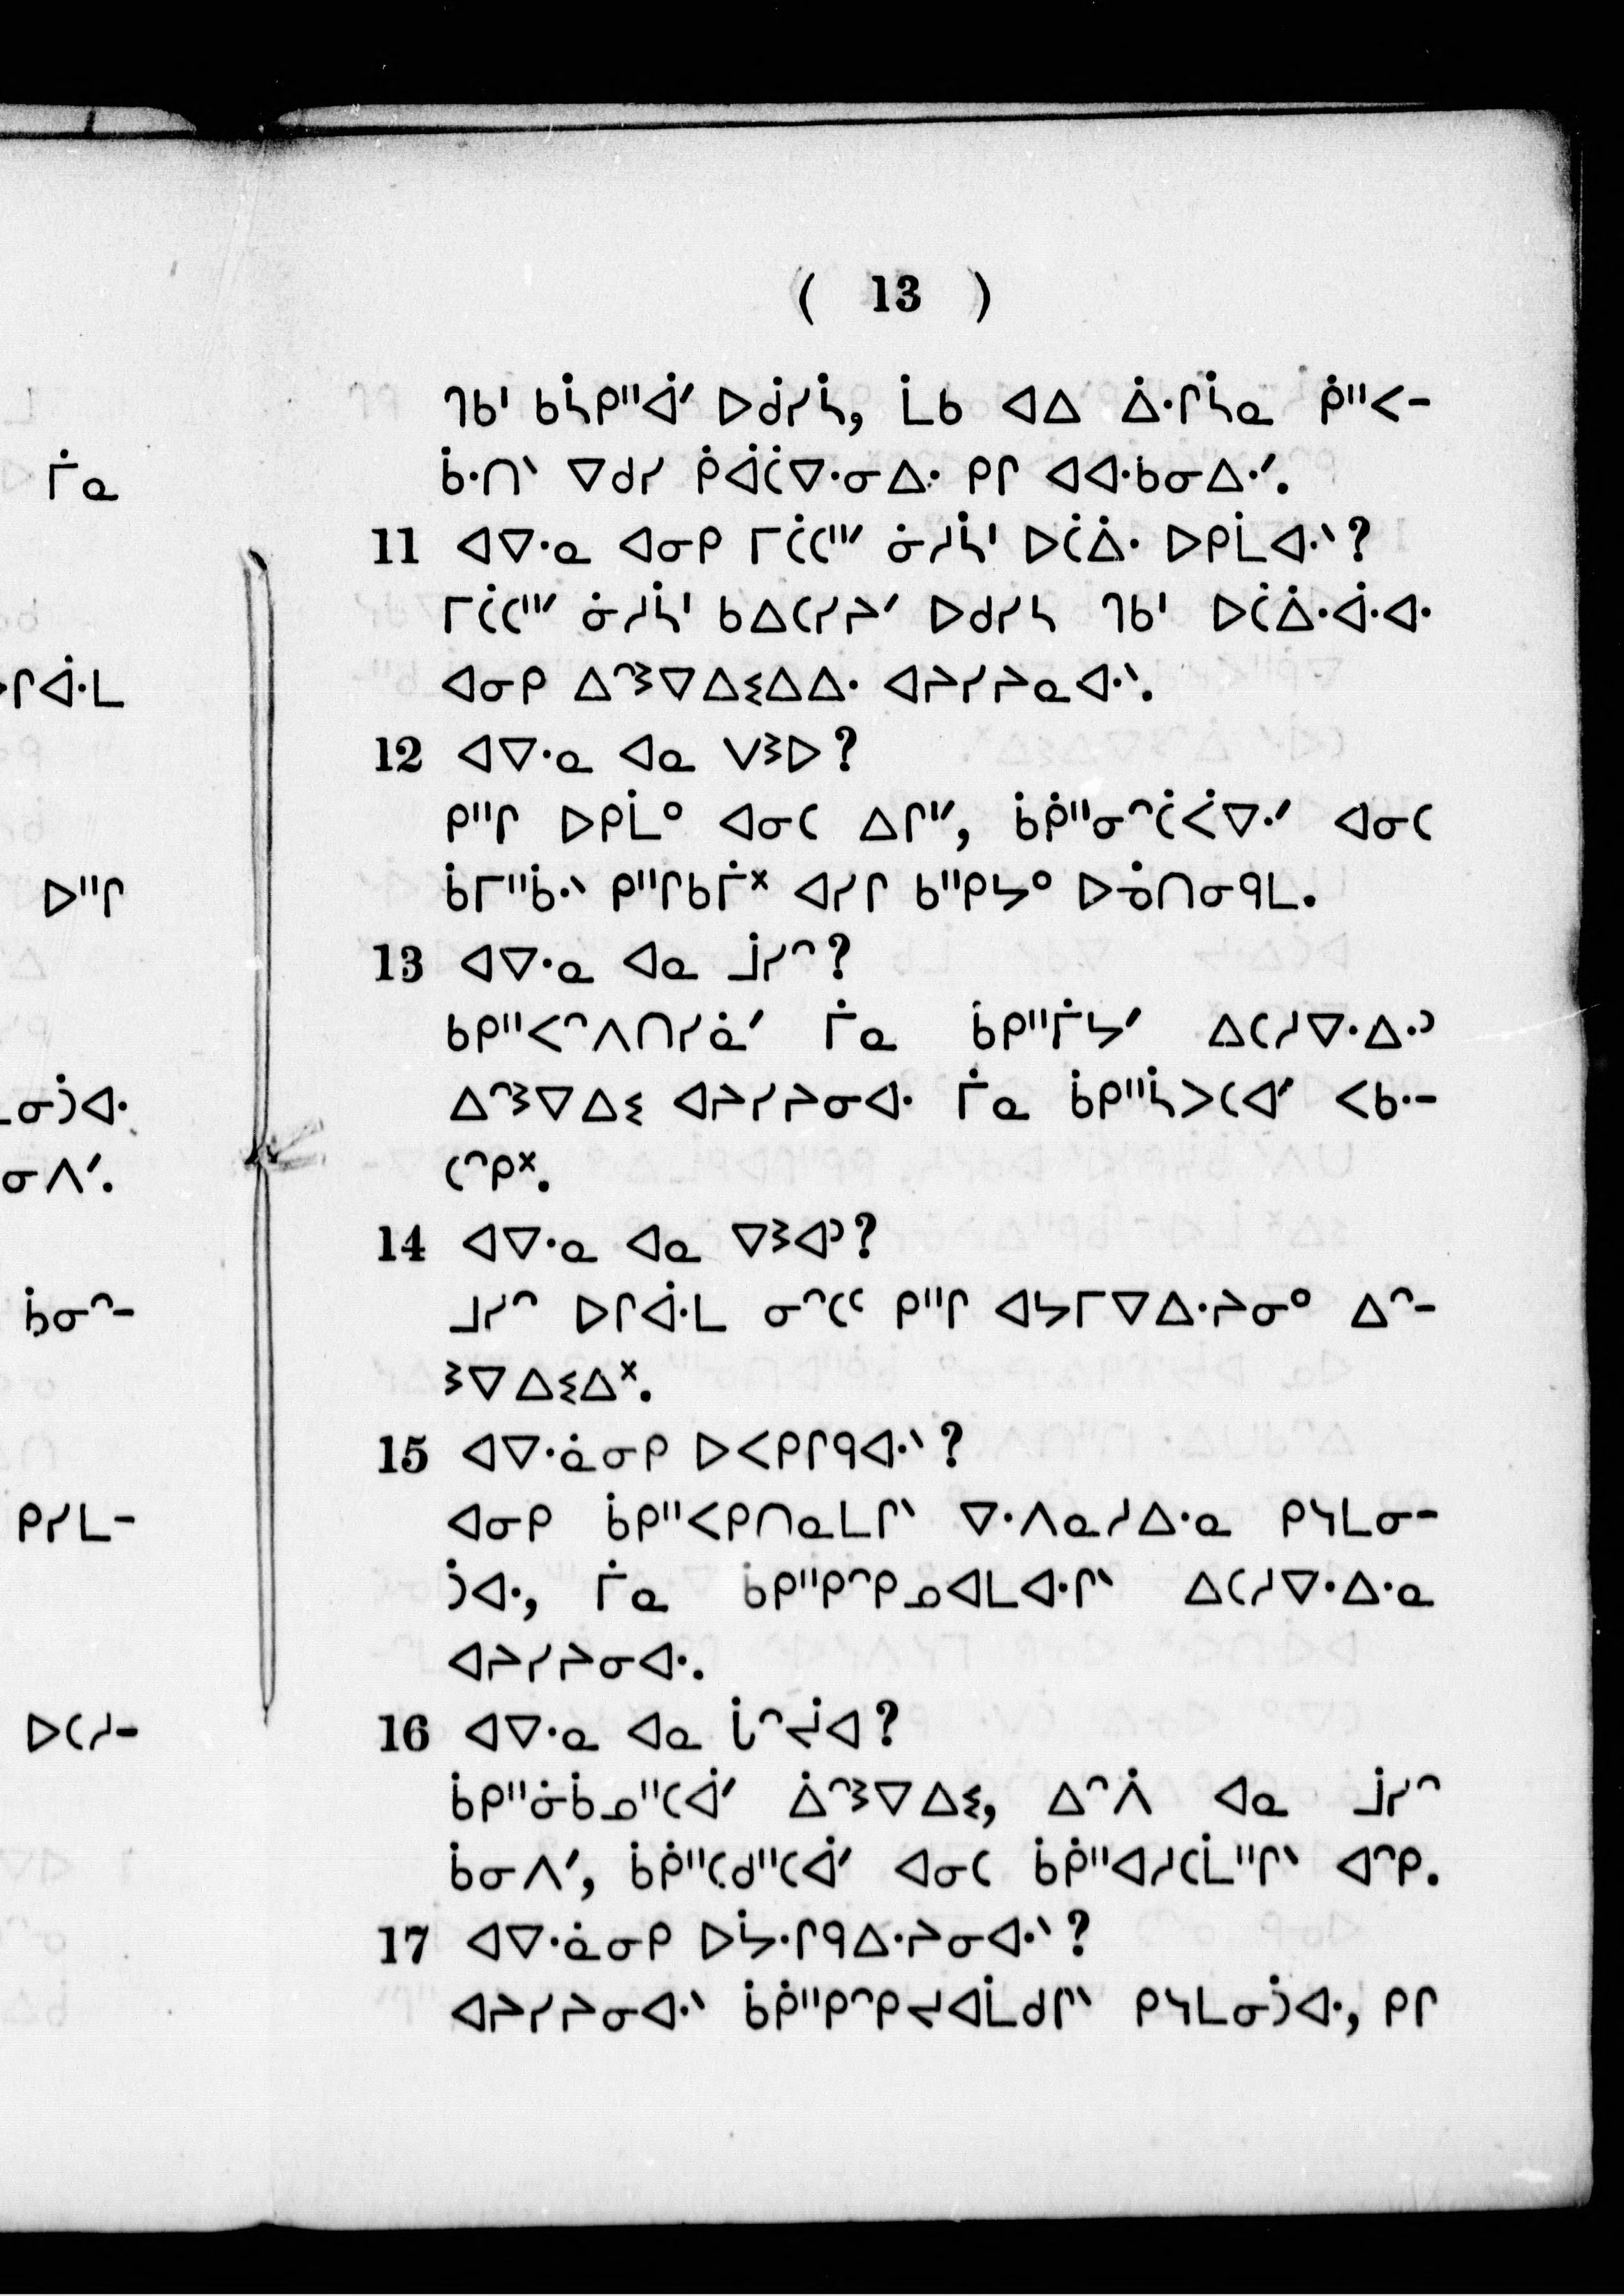 ( 13 )
ᒉᑲᑊ ᑲᓵᑭᐦᐋᐟ ᐅᑰᓯᓵ, ᒫᑲ ᐊᐃ ᐄᐧᒋᓵᓇ ᑮᐦᐸ-
ᑳᐧᑎᐠ ᐁᑯᓯ ᑮᐋᑖᐁᐧᓂᐃᐧ ᑭᒋ ᐊᐊᐧᑲᓂᐃᐧᐟ.
11 ᐊᐁᐧᓇ ᐊᓂᑭ ᒥᑖᑕᐦᐟ ᓃᓱᓵᑊ ᐅᑖᐄᐧ ᐅᑭᒫᐊᐧᐠ?
ᒥᑖᑕᐦᐟ ᓃᓱᓵᑊ ᑲᐃᑕᓯᔨᐟ ᐅᑯᓯᓴ ᒉᑲᑊ ᐅᑖᐄᐧᐋᐧᐊᐧ
ᐊᓂᑭ ᐃᐢᕒᐁᐃᓬᐃᐃᐧ ᐊᔨᓯᔨᓇᐊᐧᐠ.
12 ᐊᐁᐧᓇ ᐊᓇ ᐯᕒᐅ?
ᑭᐦᒋ ᐅᑭᒫᐤ ᐊᓂᑕ ᐃᒋᐦᐟ, ᑳᑮᐦᓂᐢᑖᐹᐁᐧᐟ ᐊᓂᑕ
ᑳᒥᐦᑳᐧᐠ ᑭᐦᒋᑲᒦᕽ ᐊᓯᒋ ᑲᐦᑭᔭᐤ ᐅᓅᑎᓂᑫᒪ.
13 ᐊᐁᐧᓇ ᐊᓇ ᒨᓯᐢ?
ᑲᑭᐦᐸᐢᐱᑎᓯᓈᐟ ᒦᓇ ᑳᑭᐦᒦᔭᐟ ᐃᑕᓱᐁᐧᐃᐧᐣ
ᐃᐢᕒᐁᐃᓬ ᐊᔨᓯᔨᓂᐊᐧ ᒦᓇ ᑳᑭᐦᓵᐳᑕᐊᐟ ᐸᑲᐧ-
ᑕᐢᑭᕽ.
14 ᐊᐁᐧᓇ ᐊᓇ ᐁᕒᐊᐣ?
ᒧᓯᐢ ᐅᒋᐋᐧᒪ ᓂᐢᑕᒼ ᑭᐦᒋ ᐊᔭᒥᐁᐃᐧᔨᓂᐤ ᐃᐢ-
ᕒᐁᐃᓬᐃᕽ.
15 ᐊᐁᐧᓈᓂᑭ ᐅᐸᑭᒋᑫᐊᐧᐠ?
ᐊᓂᑭ ᑳᑭᐦᐸᑭᑎᓇᒪᒋᐠ ᐁᐧᐱᓇᓱᐃᐧᓇ ᑭᓭᒪᓂ-
ᑑᐊᐧ, ᒦᓇ ᑳᑭᐦᑭᐢᑭᓄᐊᒪᐊᐧᒋᐠ ᐃᑕᓱᐁᐧᐃᐧᓇ
ᐊᔨᓯᔨᓂᐊᐧ.
16 ᐊᐁᐧᓇ ᐊᓇ ᒑᐢᔫᐊ?
ᑳᑭᐦᓃᑳᓄᐦᑕᐋᐟ ᐄᐢᕒᐁᐃᓬ, ᐃᐢᐲ ᐊᓇ ᒨᓯᐢ
ᑳᓂᐱᐟ, ᑳᑮᐦᑕᑯᐦᑕᐋᐟ ᐊᓂᑕ ᑳᑮᐦᐊᓱᑕᒫᐦᒋᐠ ᐊᐢᑭ.
17 ᐊᐁᐧᓈᓂᑭ ᐅᔮᐧᒋᑫᐃᐧᔨᓂᐊᐧᐠ?
ᐊᔨᓯᔨᓂᐊᐧᐠ ᑳᑮᐦᑭᐢᑭᔪᐊᒫᑯᒋᐠ ᑭᓭᒪᓂᑑᐊᐧ, ᑭᒋ